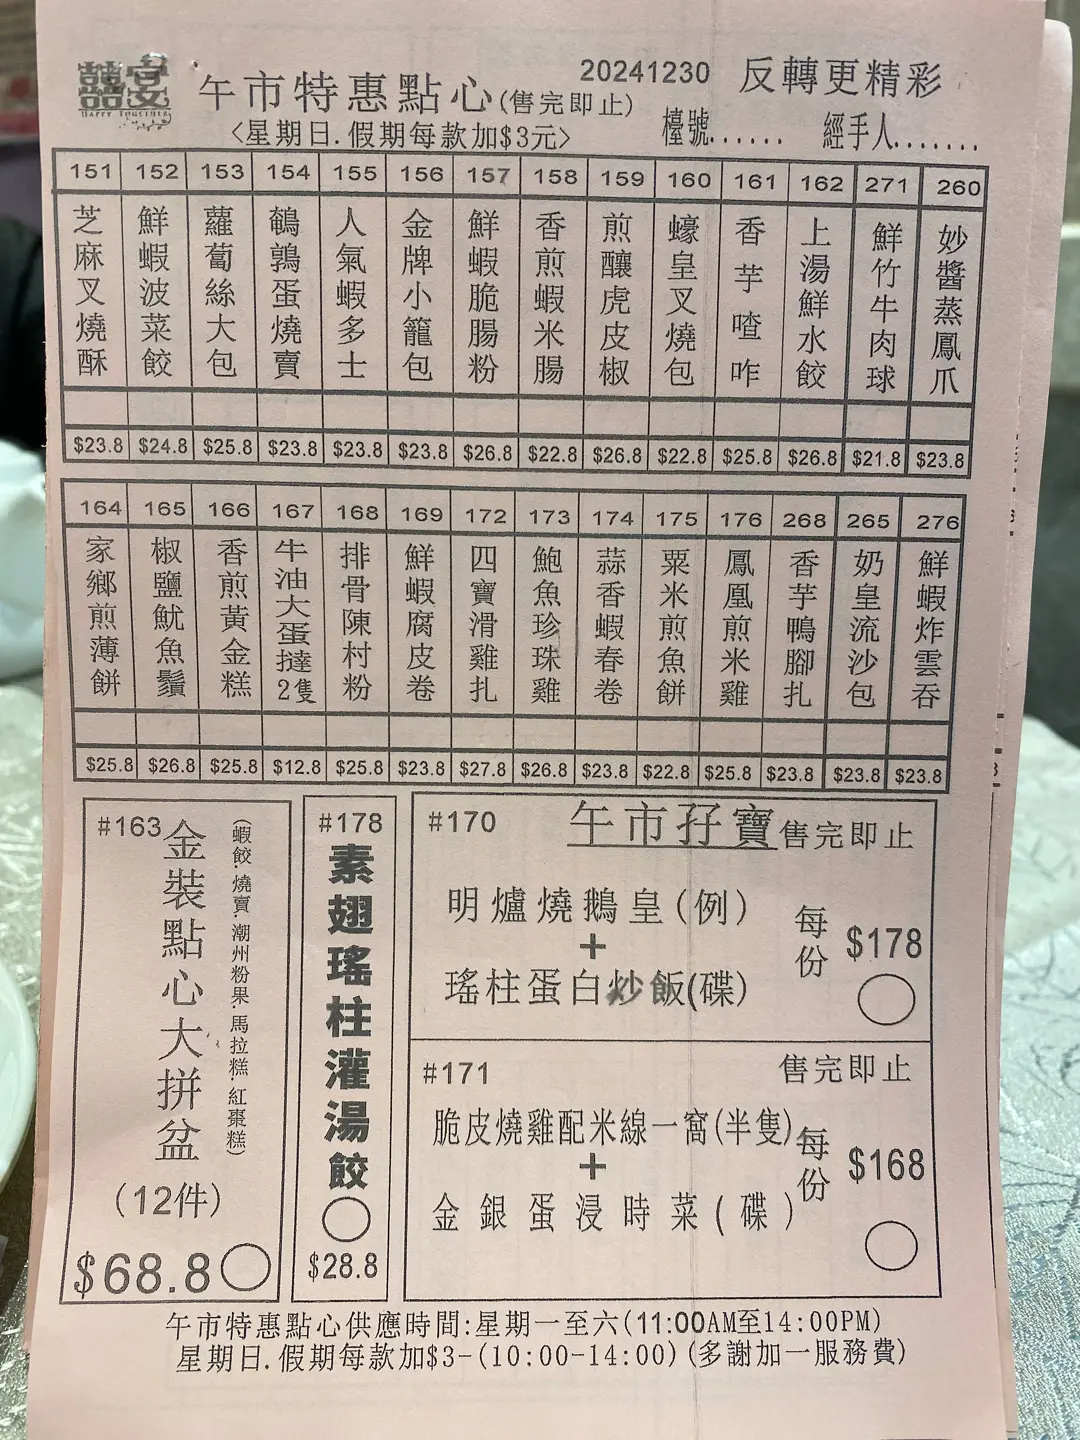 囍宴
HAPPY TOGETHER
午市特惠點心(售完即止)
20241230
反轉更精彩
<星期日.假期每款加$3元>
檯號......
經手人.......
151 152 153 154 155 156 157 158 159 160 161 162 271 260
芝麻叉燒酥
鮮蝦波菜餃
蘿蔔絲大包
鵪鶉蛋燒賣
人氣蝦多士
金牌小籠包
鮮蝦脆腸粉
香煎蝦米腸
煎釀虎皮椒
蠔皇叉燒包
香芋喳咋
上湯鮮水餃
鮮竹牛肉球
妙醬蒸鳳爪
$23.8 $24.8 $25.8 $23.8 $23.8 $23.8 $26.8 $22.8 $26.8 $22.8 $25.8 $26.8 $21.8 $23.8
164 165 166 167 168 169 172 173 174 175 176 268 265 276
家鄉煎薄餅
椒鹽魷魚鬚
香煎黃金糕
牛油大蛋撻2隻
排骨陳村粉
鮮蝦腐皮卷
四寶滑雞扎
鮑魚珍珠雞
蒜香蝦春卷
粟米煎魚餅
鳳凰煎米雞
香芋鴨腳扎
奶皇流沙包
鮮蝦炸雲吞
$25.8 $26.8 $25.8 $12.8 $25.8 $23.8 $27.8 $26.8 $23.8 $22.8 $25.8 $23.8 $23.8 $23.8
#163
金裝點心大拼盆
(蝦餃.燒賣.潮州粉果.馬拉糕.紅棗糕)
(12件)
$68.8
#178
素翅瑤柱灌湯餃
$28.8
#170
午市孖寶售完即止
明爐燒鵝皇(例)
+
瑤柱蛋白炒飯(碟)
每份
$178
#171
售完即止
脆皮燒雞配米線一窩(半隻)
+
金銀蛋浸時菜(碟)
每份
$168
午市特惠點心供應時間:星期一至六(11:00AM至14:00PM)
星期日.假期每款加$3-(10:00-14:00)(多謝加一服務費)